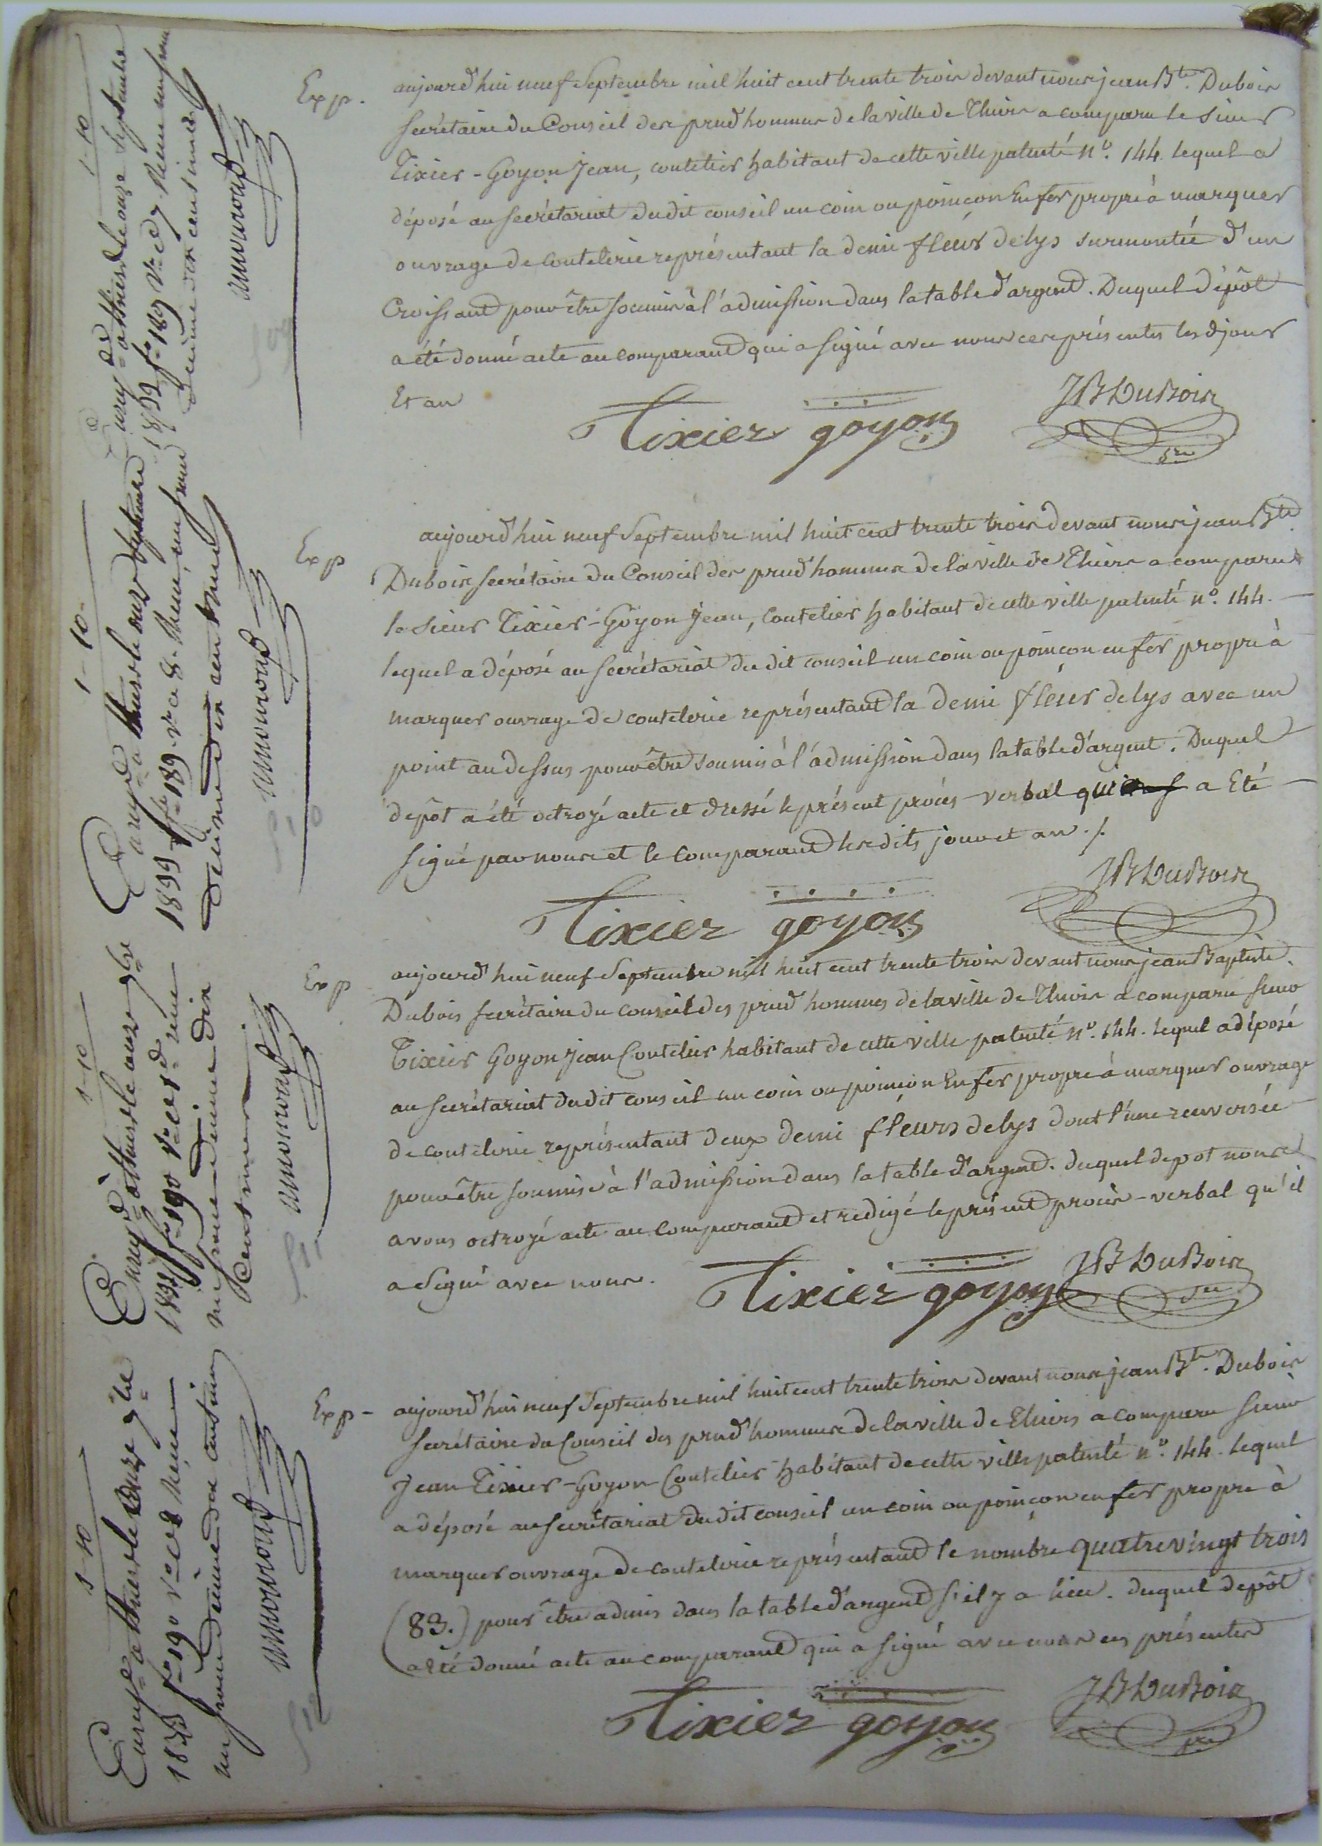 Exp.
aujourd'hui neuf Septembre mil huit cent trente trois devant nous jean Bte. Dubois
secrétaire du Conseil des prud'hommes de la ville de Thiers a comparu le sieur
Tixier-Goyon Jean, coutelier habitant de cette ville patenté n°. 144. lequel a
déposé au secrétariat dudit conseil un coin ou poinçon en fer propre à marquer
ouvrage de coutelerie représentant la demi fleur de lys surmontée d'un
Croissant pour être soumis à l'admission dans la table d'argent. Duquel dépôt
a été donné acte au comparant qui a signé avec nous ces présentes les d. jour
Et an
Tixier goyon JB Dubois
sre
Exp
aujourd'hui neuf Septembre mil huit cent trente trois devant nous jean Bte
Dubois secrétaire du Conseil des prud'hommes de la ville de Thiers a comparu
le sieur Tixier-Goyon Jean, coutelier habitant de cette ville patenté n°. 144.
lequel a déposé au secrétariat dudit conseil un coin ou poinçon en fer propre à
marquer ouvrage de coutelerie représentant la demi fleur de lys avec un
point au dessus pour être soumis à l'admission dans la table d'argent. Duquel
dépôt a été octroyé acte et dressé le présent procès-verbal qui a Eté
signé par nous et le comparant lesdits jour et an ./.
Tixier goyon JB Dubois
Exp
aujourd'hui neuf Septembre mil huit cent trente trois devant nous jean Baptiste.
Dubois secrétaire du conseil des prud'hommes de la ville de Thiers a comparu sieur
Tixier Goyon Jean Coutelier habitant de cette ville patenté n°. 144. lequel a déposé
au secrétariat dudit conseil un coin ou poinçon en fer propre à marquer ouvrage
de coutelerie représentant deux demi fleurs de lys dont l'une renversée
pour être soumise à l'admission dans la table d'argent. duquel depot nous
avons octroyé acte au comparant et redigé le présent procès-verbal qu'il
a signé avec nous.
Tixier goyon JB Dubois
sre
Exp-
aujourd'hui neuf Septembre mil huit cent trente trois devant nous jean Bte. Dubois
secrétaire du Conseil des prud'hommes de la ville de Thiers a comparu sieur
Jean Tixier-Goyon Coutelier habitant de cette ville patenté n°. 144. lequel
a déposé au secrétariat dudit conseil un coin ou poinçon en fer propre à
marquer ouvrage de coutelerie représentant le nombre quatrevingt trois
(83.) pour être admis dans la table d'argent s'il y a lieu. duquel dépôt
a été donné acte au comparant qui a signé avec nous ces présentes
Tixier goyon JB Dubois
sre
1-10
Enregé. à thiers le onze Septembre
1833 fo. 189 Vo. Reçu un franc
décime dix centimes
1-10.
Enregé. à thiers le onze Septembre
1833 fo. 189. Vo. c. 8. Reçu, un franc
décime dix centimes
1-10
Enregé. à thiers le onze 7bre
1833 fo. 190 Vo. reçu
un franc décime dix
centimes
1-10
Enregé. à thiers le onze 7bre
1833 fo. 190 Vo. Reçu
un franc décime dix centimes